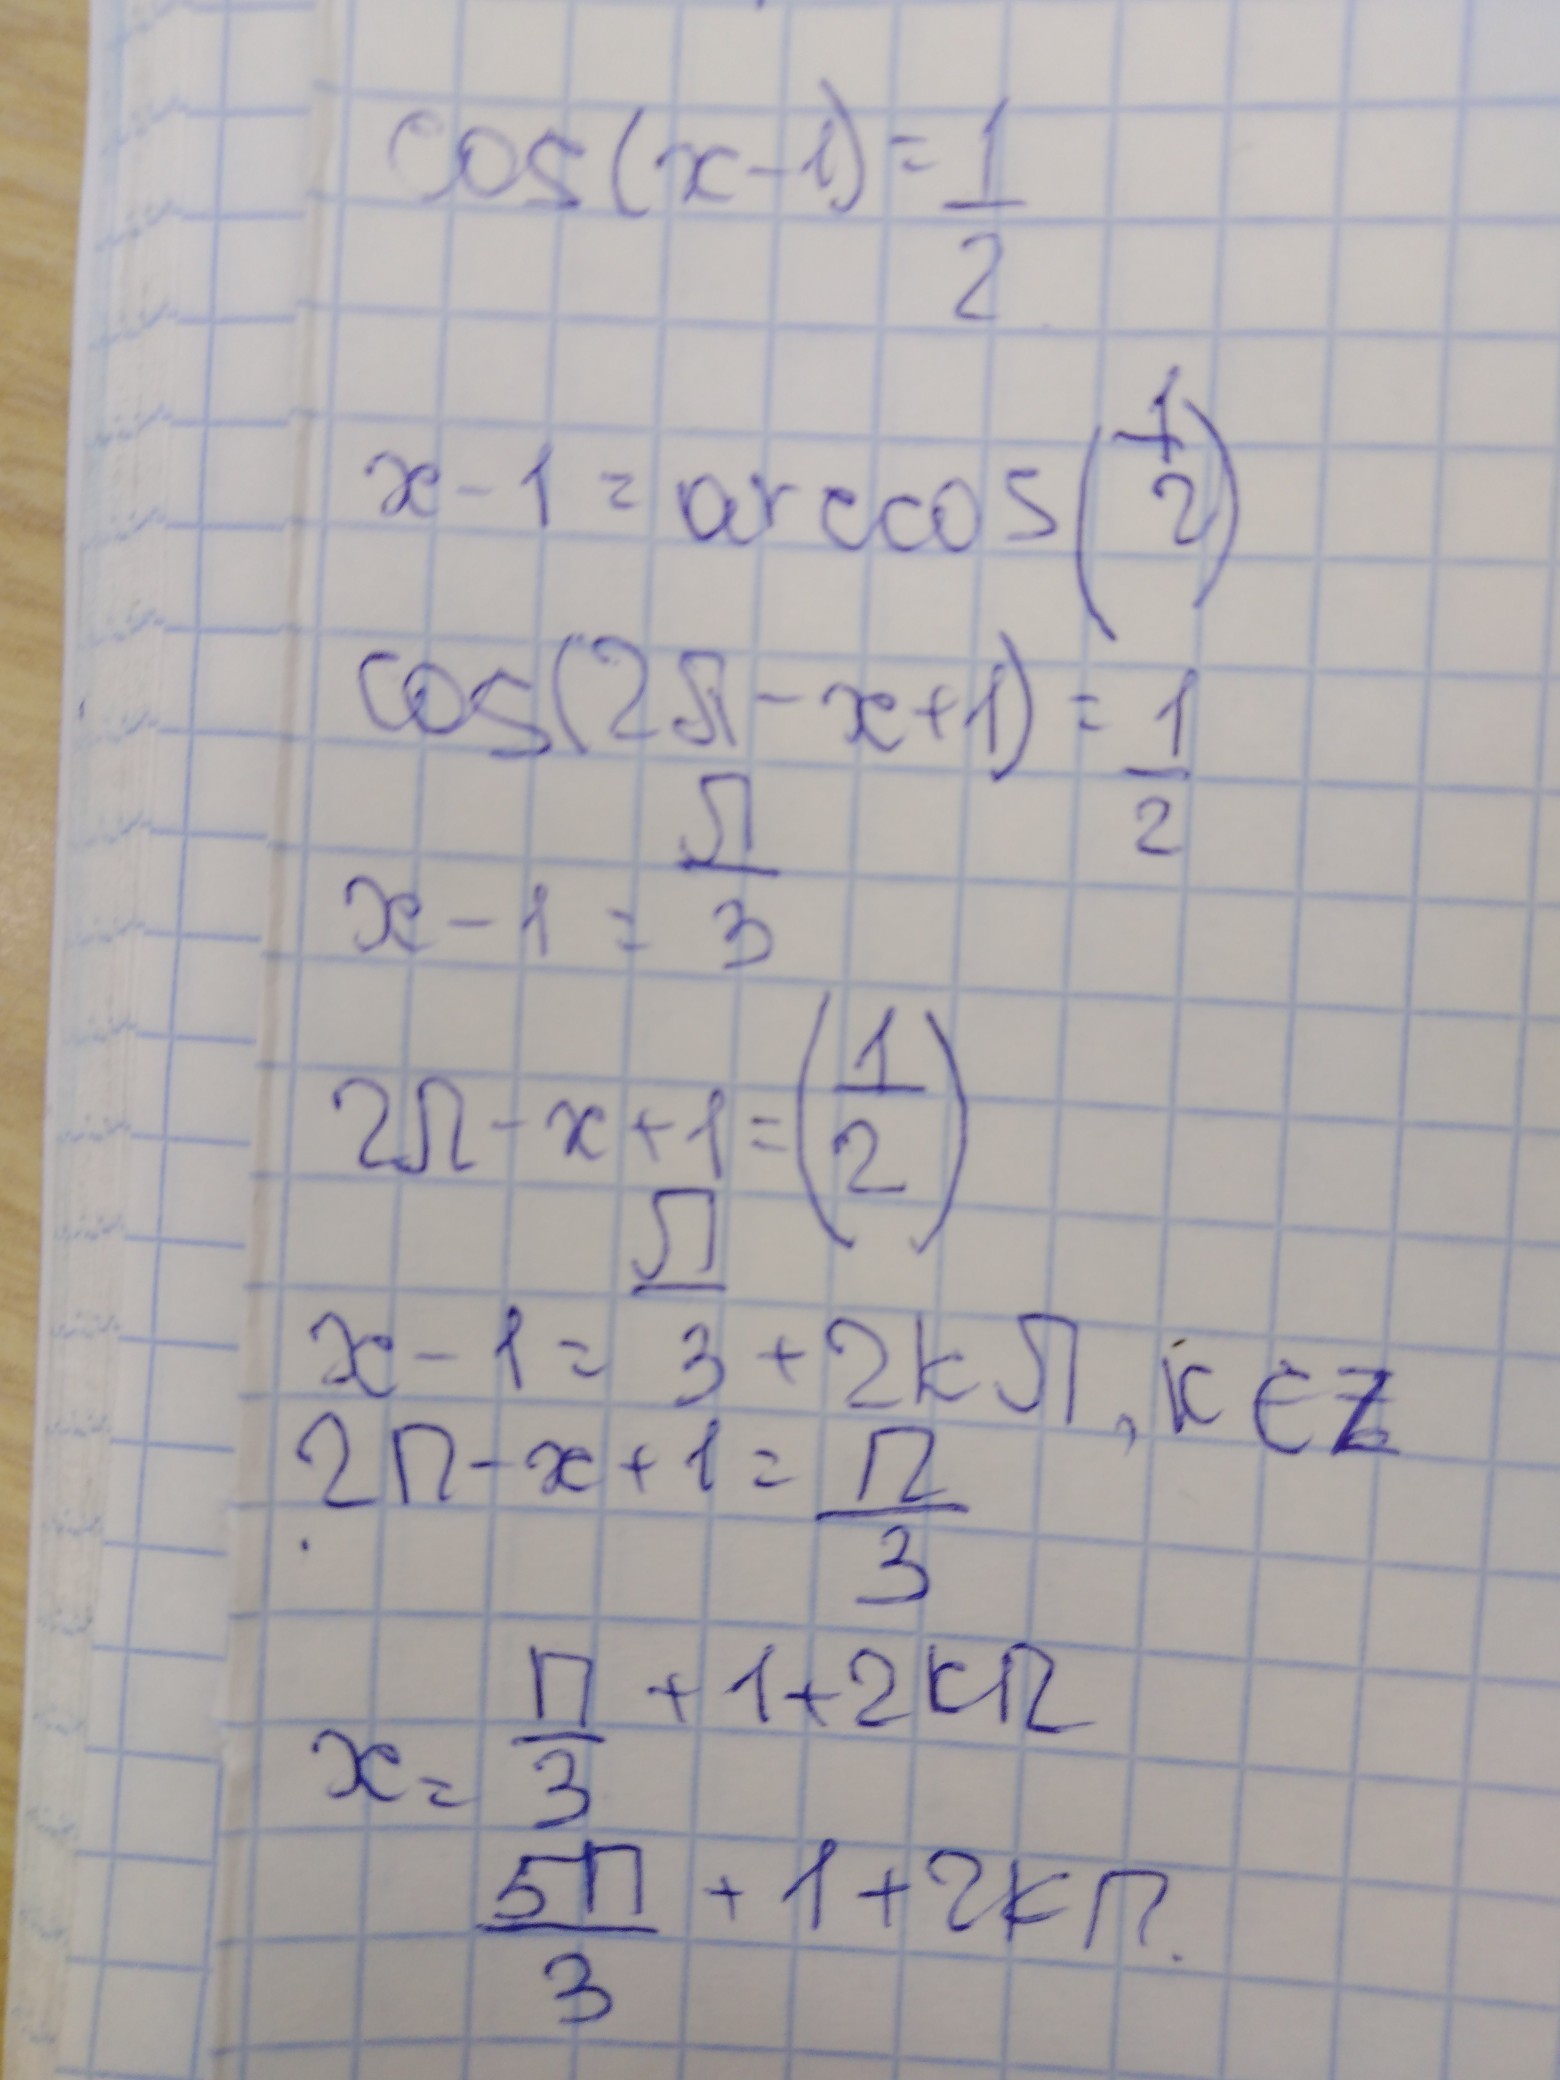 cos(x-1)=1/2
x-1=arccos(1/2)
cos(2π-x+1)=1/2
x-1=π/3
2π-x+1=(1/2)
x-1=π/3+2kπ, k∈Z
2π-x+1=π/3
x=π/3+1+2kπ
5π/3+1+2kπ.